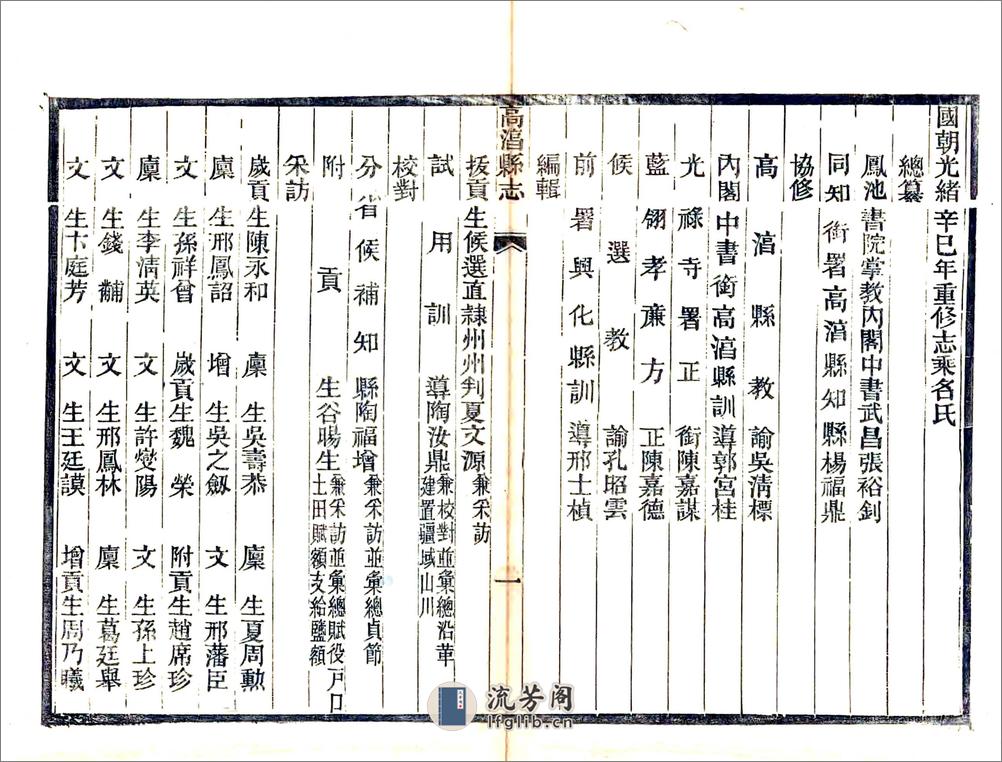 國朝光緒辛巳年重修志乘名氏
總纂
鳳池書院掌教內閣中書武昌張裕釗
同知銜署高淳縣知縣楊福鼎
協修
高淳縣教諭吳淸標
內閣中書銜高淳縣訓導郭宮桂
光祿寺署正銜陳嘉謀
藍翎孝廉方正陳嘉德
候選教諭孔昭雲
前署興化縣訓導邢士楨
編輯
高淳縣志
一
拔貢生候選直隸州州判夏文源兼采訪
試用訓導陶汝鼎兼校對並彙總沿革建置疆域山川
校對
分省候補知縣陶福增兼采訪並彙總貞節
附貢生谷暘生兼采訪並彙總賦役戶口土田賦額支給鹽額
采訪
歲貢生陳永和 廩生吳壽恭 廩生夏周勲
廩生邢鳳詔 增生吳之劔 文生邢藩臣
文生孫祥曾 歲貢生魏榮 附貢生趙席珍
廩生李淸英 文生許燮陽 文生孫上珍
文生錢黼 文生邢鳳林 廩生葛廷舉
文生卞庭芳 文生王廷謨 增貢生周乃曦
流芳阁
lfglib.cn